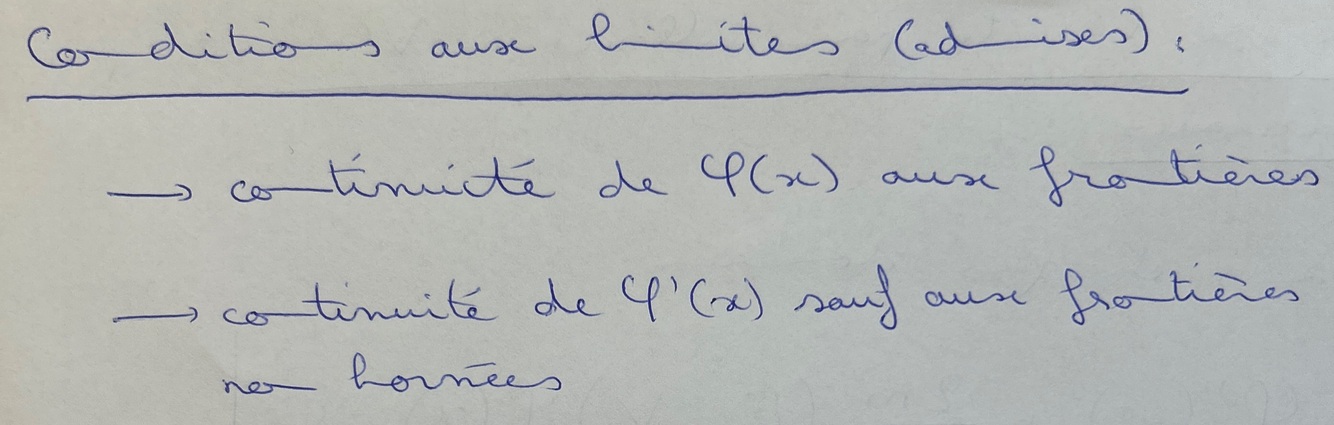 Conditions aux limites (admises) :
→ continuité de φ(x) aux frontières
→ continuité de φ'(x) sauf aux frontières
non bornées